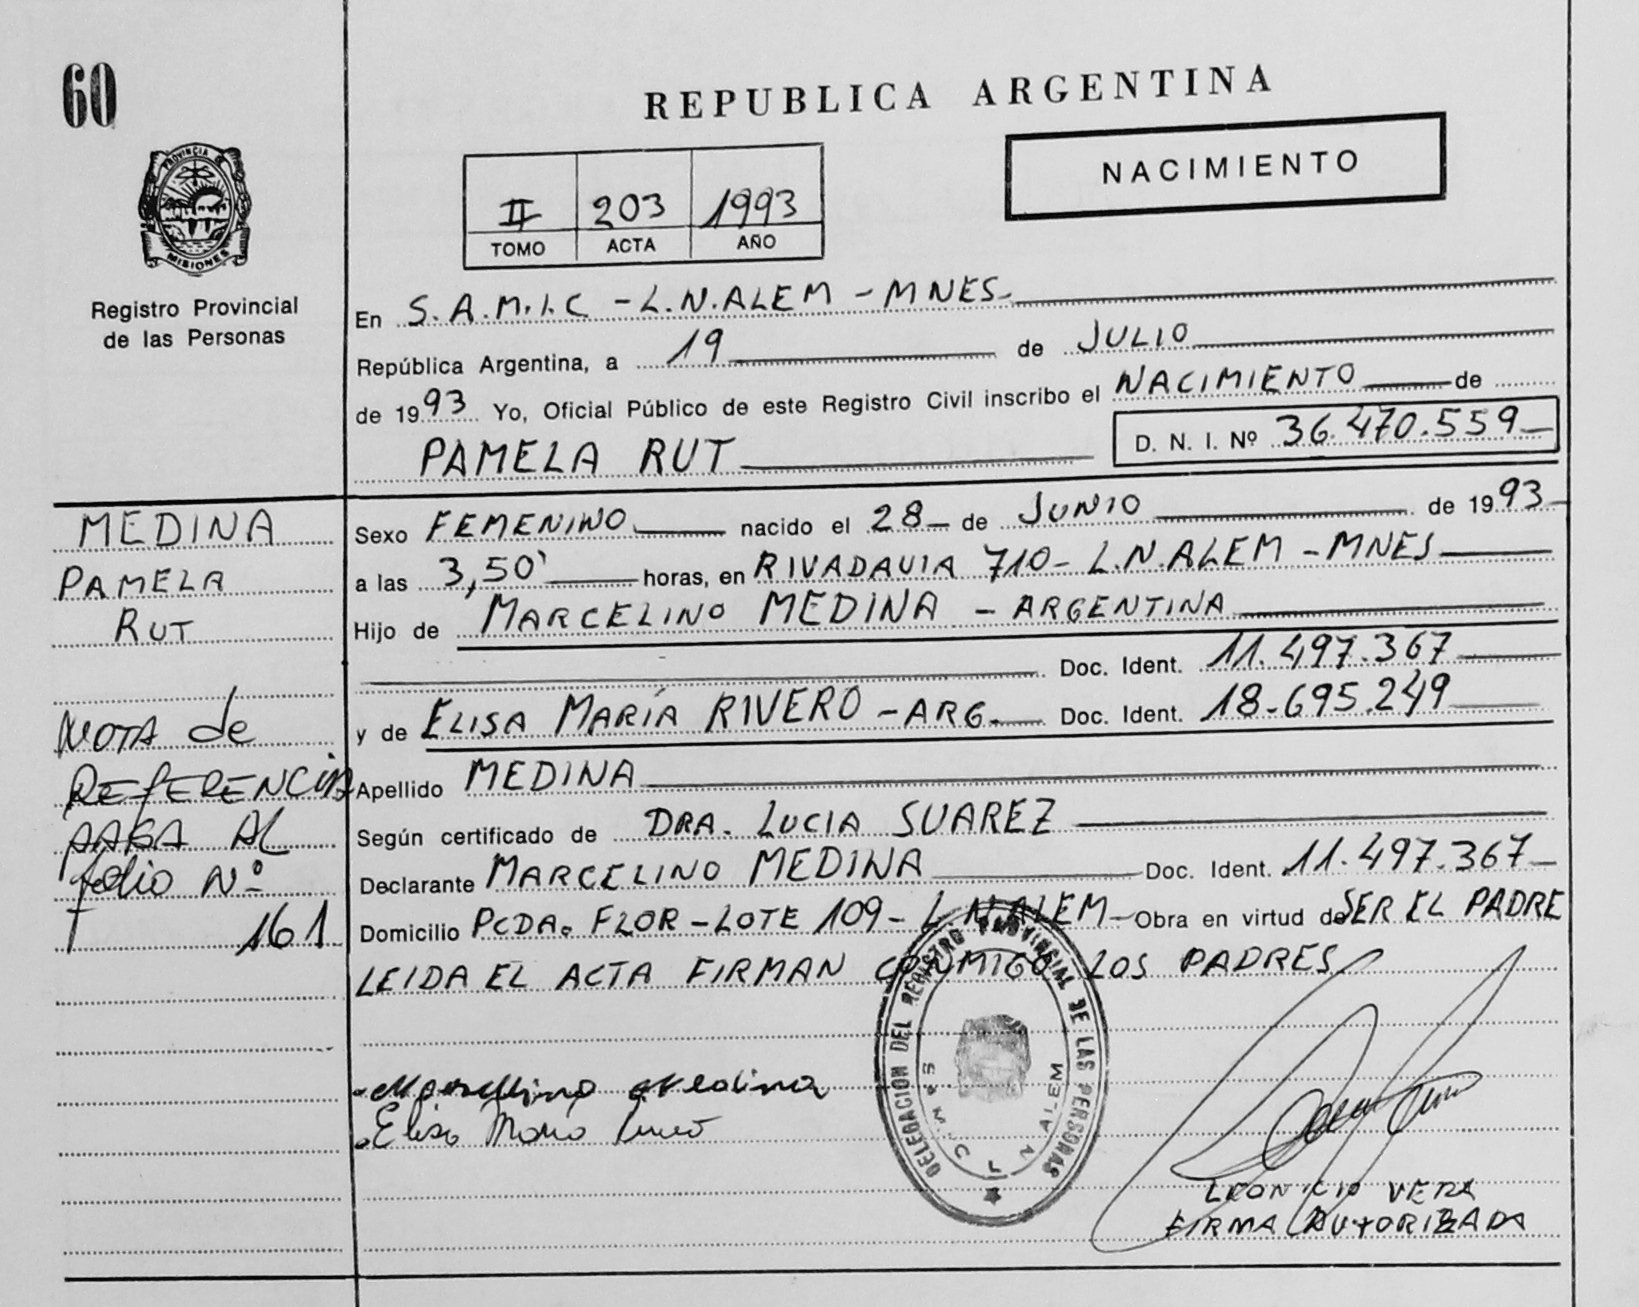 60
REPUBLICA ARGENTINA
NACIMIENTO
PROVINCIA DE
MISIONES
Registro Provincial
de las Personas
II 203 1993
TOMO ACTA AÑO
En S.A.M.I.C - L.N.ALEM - MNES-
República Argentina, a 19 de JULIO
de 1993 Yo, Oficial Público de este Registro Civil inscribo el NACIMIENTO de
PAMELA RUT D. N. I. Nº 36.470.559
MEDINA
PAMELA
RUT
Sexo FEMENINO nacido el 28 de JUNIO de 1993
a las 3,50' horas, en RIVADAVIA 710- L.N.ALEM - MNES
Hijo de MARCELINO MEDINA - ARGENTINA
Doc. Ident. 11.497.367
y de ELISA MARÍA RIVERO - ARG. Doc. Ident. 18.695.249
Apellido MEDINA
Según certificado de DRA. LUCIA SUAREZ
Declarante MARCELINO MEDINA Doc. Ident. 11.497.367
Domicilio PCDA. FLOR - LOTE 109 - L.N.ALEM - Obra en virtud de SER EL PADRE
LEIDA EL ACTA FIRMAN CONMIGO LOS PADRES
NOTA de
REFERENCIA
PASA AL
folio Nº
161
DELEGACIÓN DEL REGISTRO PROVINCIAL DE LAS PERSONAS
S A M I C L N ALEM
Marcelino Medina
Elisa María Rivero
LEONICIO VERA
FIRMA AUTORIZADA